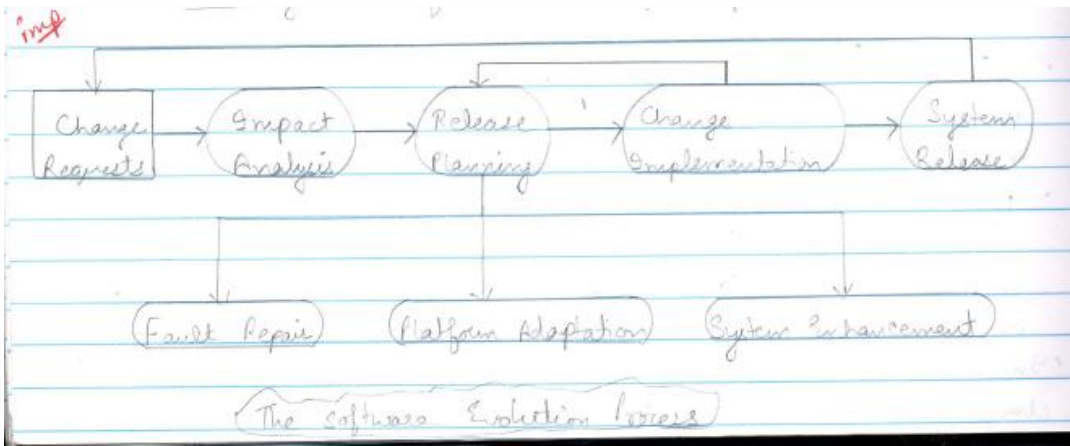 imp
Change
Requests
Impact
Analysis
Release
Planning
Change
Implementation
System
Release
Fault Repair
Platform Adaptation
System Enhancement
The Software Evolution Process